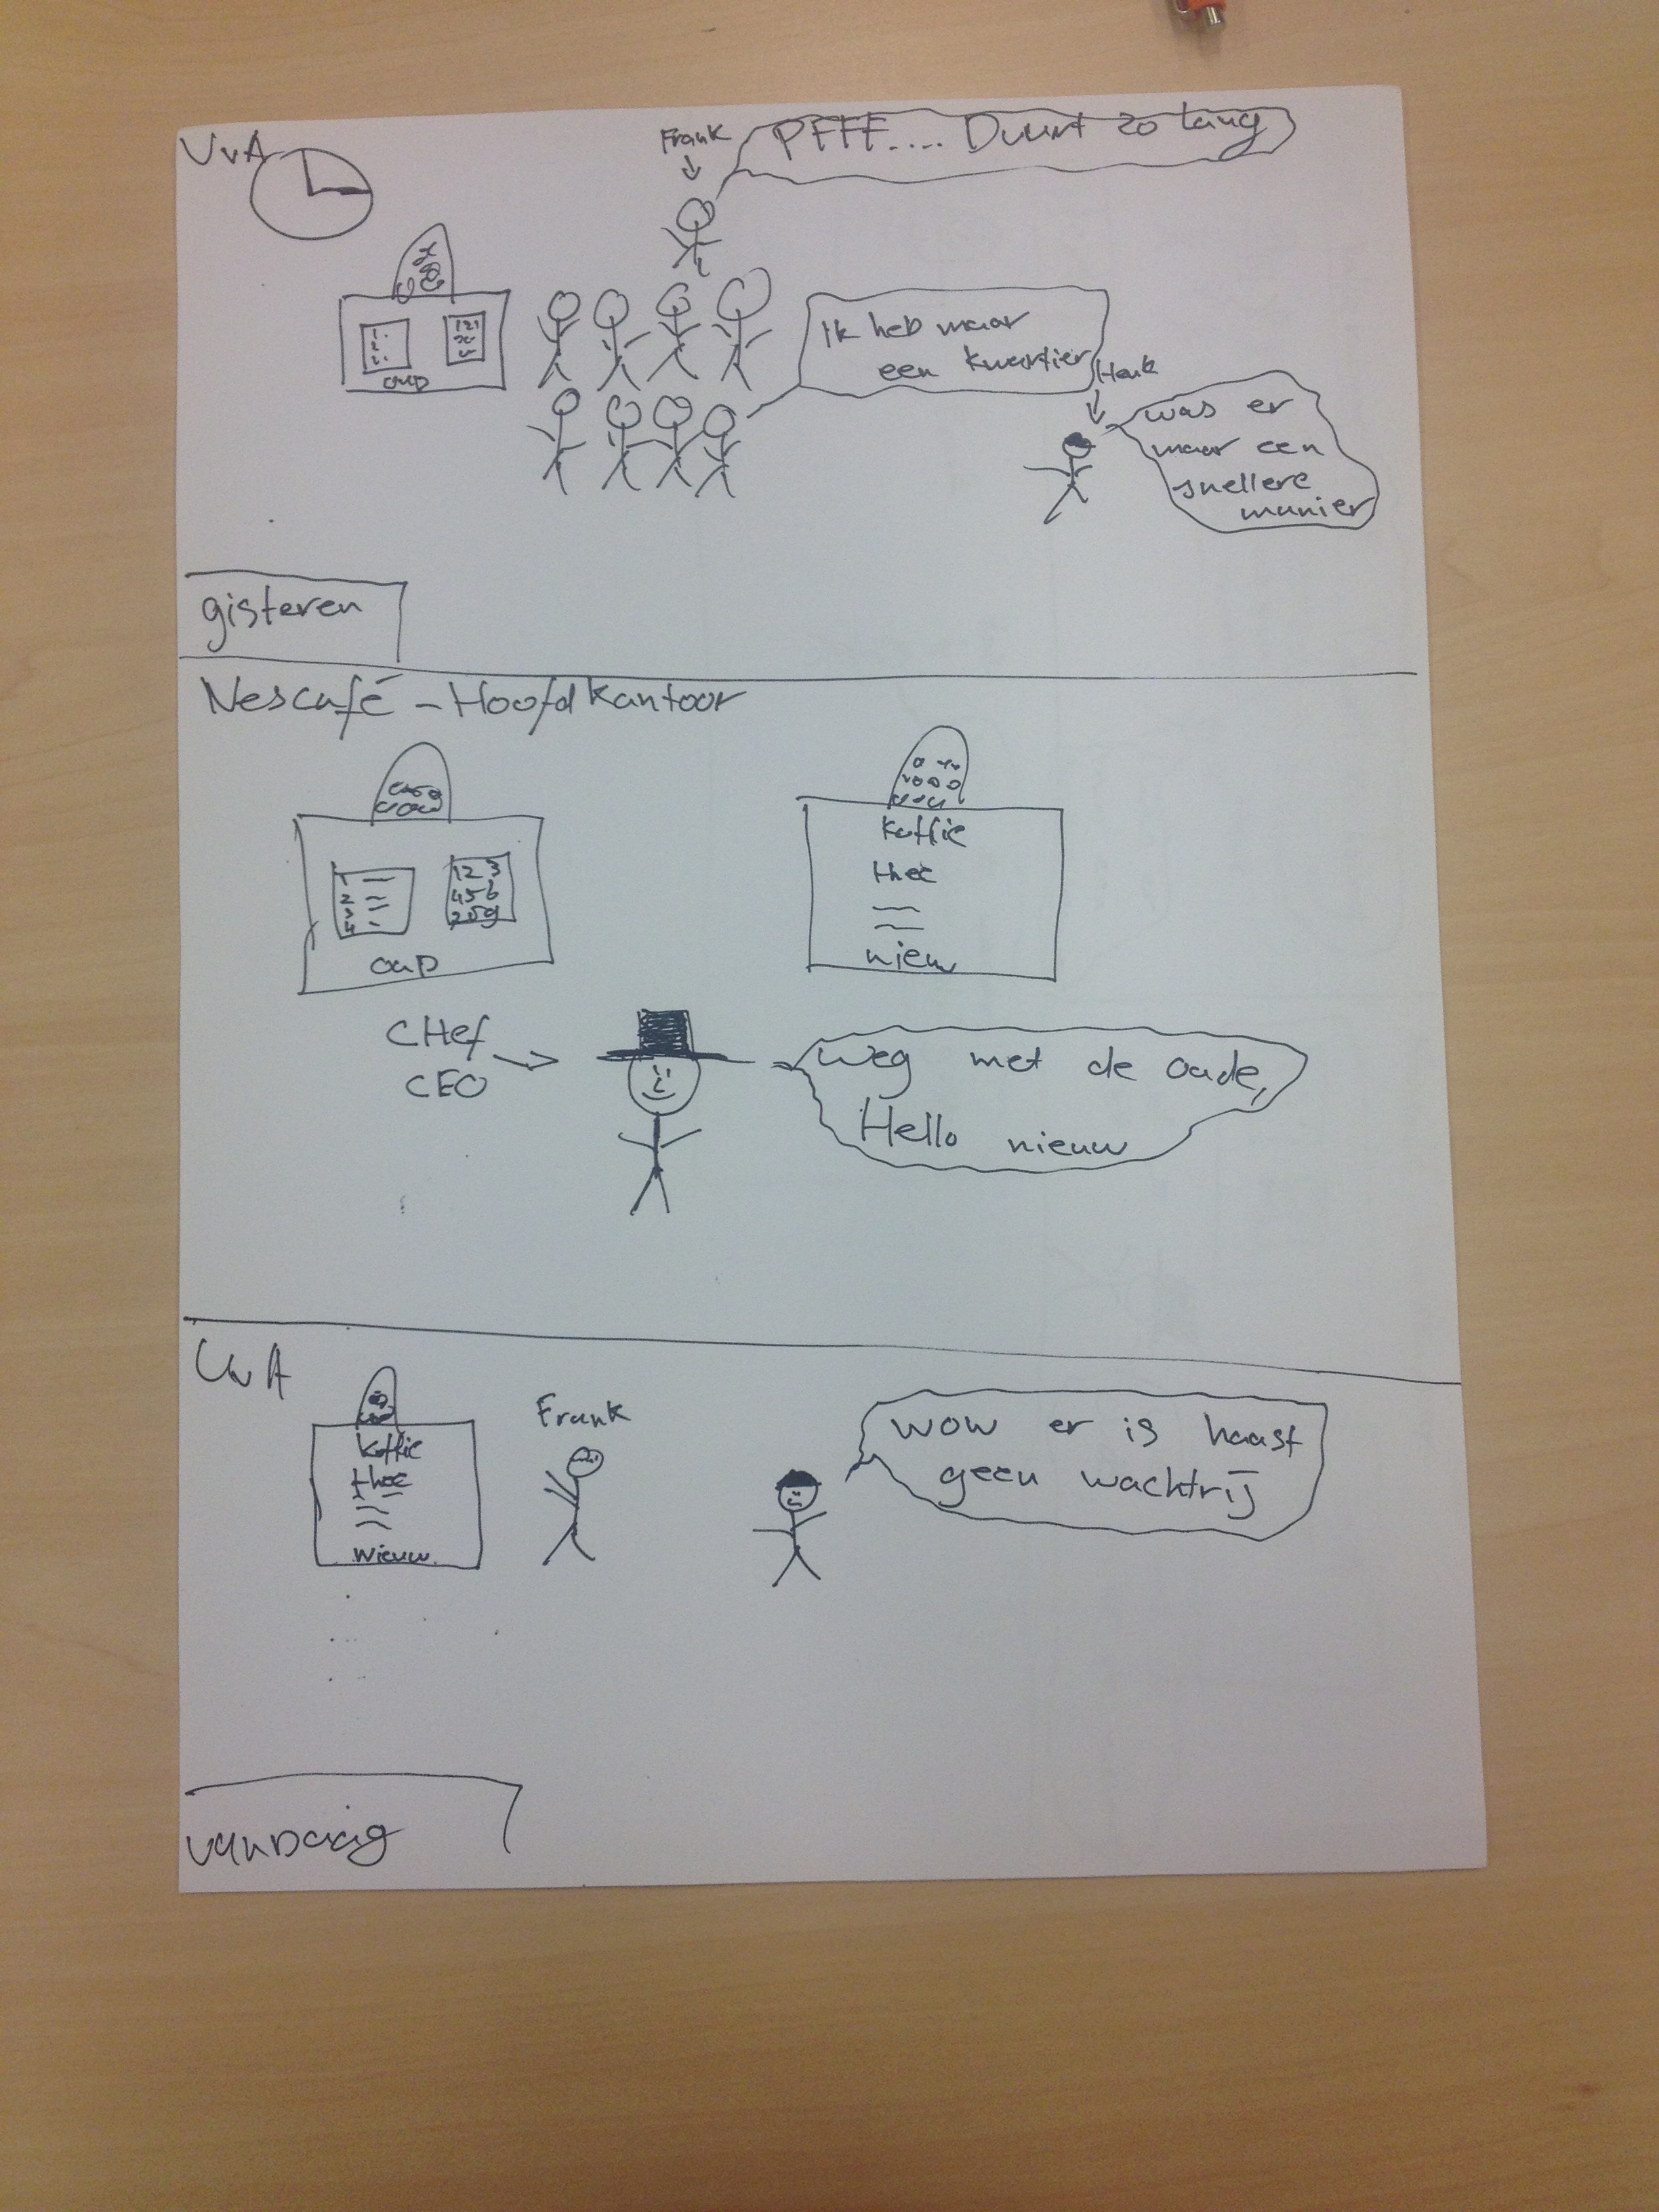 UvA
Frank
PFFF.... Duurt zo lang
Ik heb maar
een kwartier
Henk
was er
maar een
snellere
manier
oud
gisteren
Nescafé - Hoofdkantoor
1
2
3
4
123
456
789
oud
koffie
thee
nieuw
CHef
CEO
weg met de oude,
Hello nieuw
UvA
koffie
thee
Nieuw
Frank
wow er is haast
geen wachtrij
vandaag